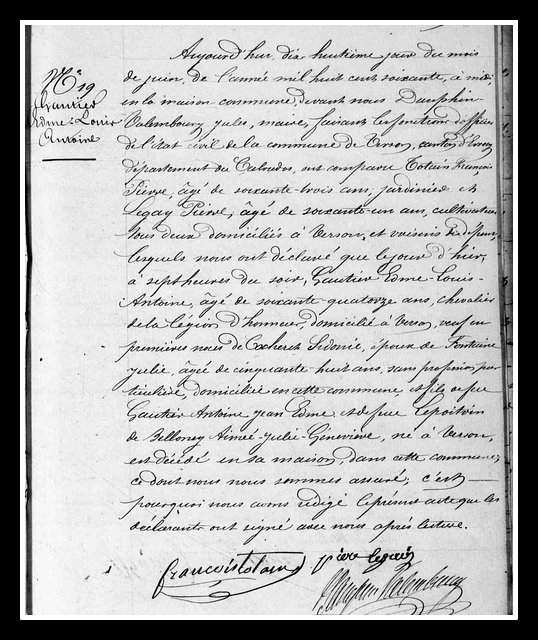 N° 19
Gautier
Edme-Louis
Antoine
Aujourd'hui dix huitième jour du mois
de juin, de l'année mil huit cent soixante, à midi,
en la maison commune, devant nous Dauphin-
Palembourg jules, maire, faisant les fonctions d'officier
de l'état civil de la commune de Verson, canton d'Evrecy
département du Calvados, ont comparu Totain François
Pierre, âgé de soixante-trois ans, jardinier et
Legay Pierre, âgé de soixante-un ans, cultivateur
tous deux domiciliés à Verson, et voisins du défunt,
lesquels nous ont déclaré que le jour d'hier,
à sept heures du soir, Gautier Edme-Louis-
Antoine, âgé de soixante-quatorze ans, chevalier
de la Légion d'honneur, domicilié à Verson, veuf en
premières noces de Sidonie, époux de Fontaine
julie, âgée de cinquante-huit ans, sans profession par
ticulière, domiciliée en cette commune, et fils de feu
Gautier Antoine jean Edme et de feue Lepoitvin
de Belloney Aimée-julie-Geneviève, né à Verson,
est décédé en sa maison, dans cette commune,
ce dont nous nous sommes assuré; c'est
pourquoi nous avons rédigé le présent acte que les
déclarants ont signé avec nous après lecture.
francois totain pierre legai